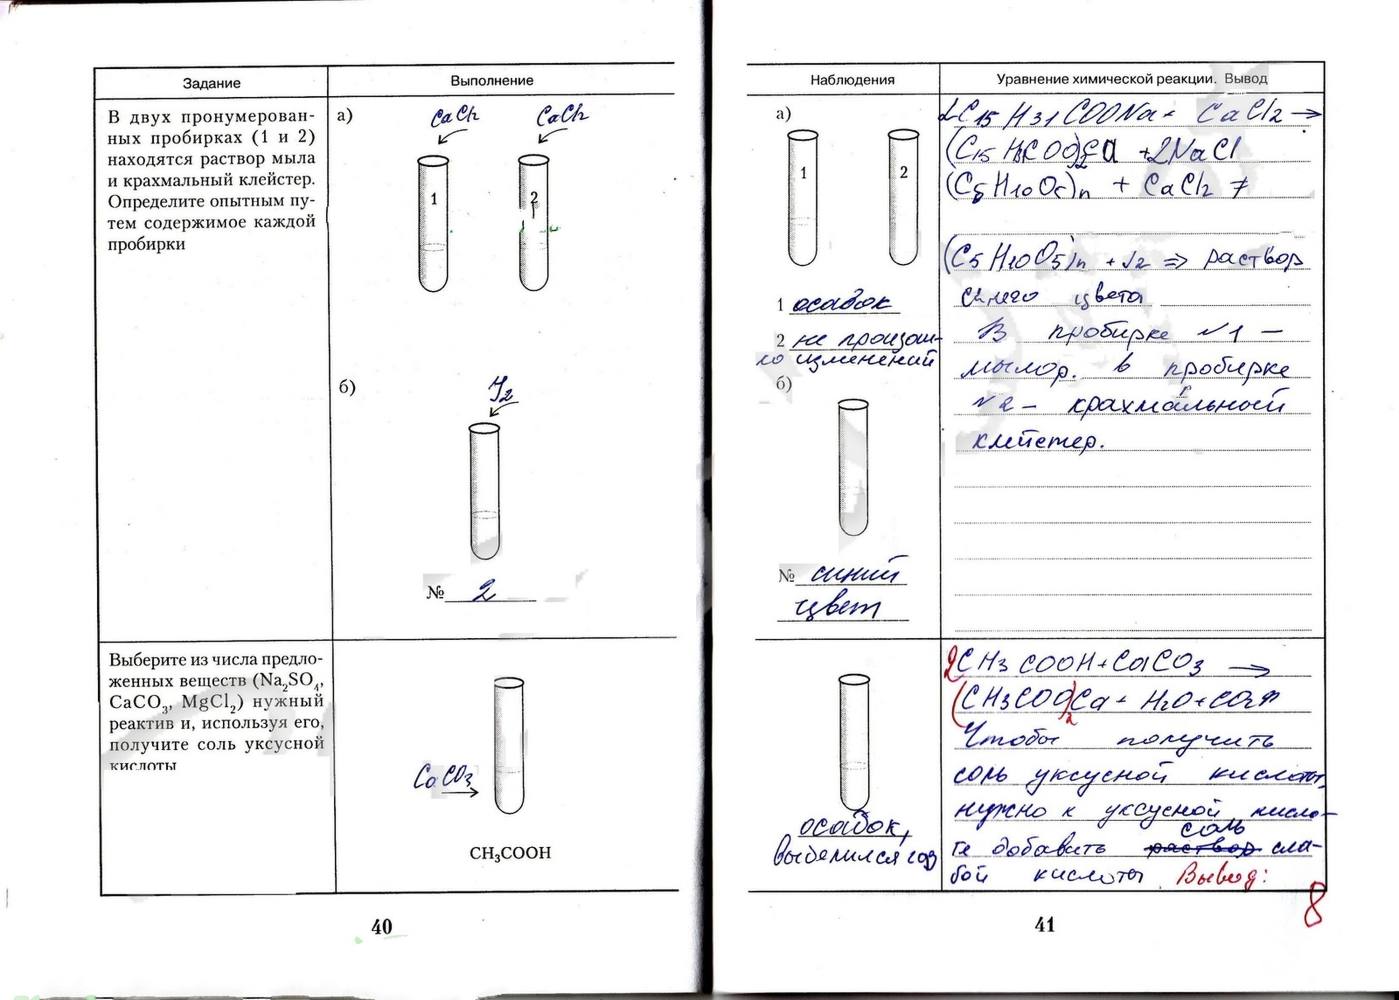 Задание
Выполнение
В двух пронумерован-
ных пробирках (1 и 2)
находятся раствор мыла
и крахмальный клейстер.
Определите опытным пу-
тем содержимое каждой
пробирки
а)
CaCl2
CaCl2
1
2
б)
J2
№ 2
Выберите из числа предло-
женных веществ (Na₂SO₄,
CaCO₃, MgCl₂) нужный
реактив и, используя его,
получите соль уксусной
кислоты
CaCO3
CH₃COOH
40
Наблюдения
Уравнение химической реакции. Вывод
а)
1
2
1 осадок
2 не произош-
ло изменений
б)
№ синий
цвет
2C15H31COONa + CaCl2 →
(C15H31COO)2Ca + 2NaCl
(C6H10O5)n + CaCl2 ≠
(C5H10O5)n + J2 => раствор
синего цвета
В пробирке №1 –
мылор. в пробирке
№2 – крахмальный
клейстер.
осадок,
выделился газ
2CH3COOH + CaCO3 →
(CH3COO)2Ca + H2O + CO2↑
Чтобы получить
соль уксусной кислоты,
нужно к уксусной кисло-
соль
те добавить раствор сла-
бой кислоты Вывод:
8
41